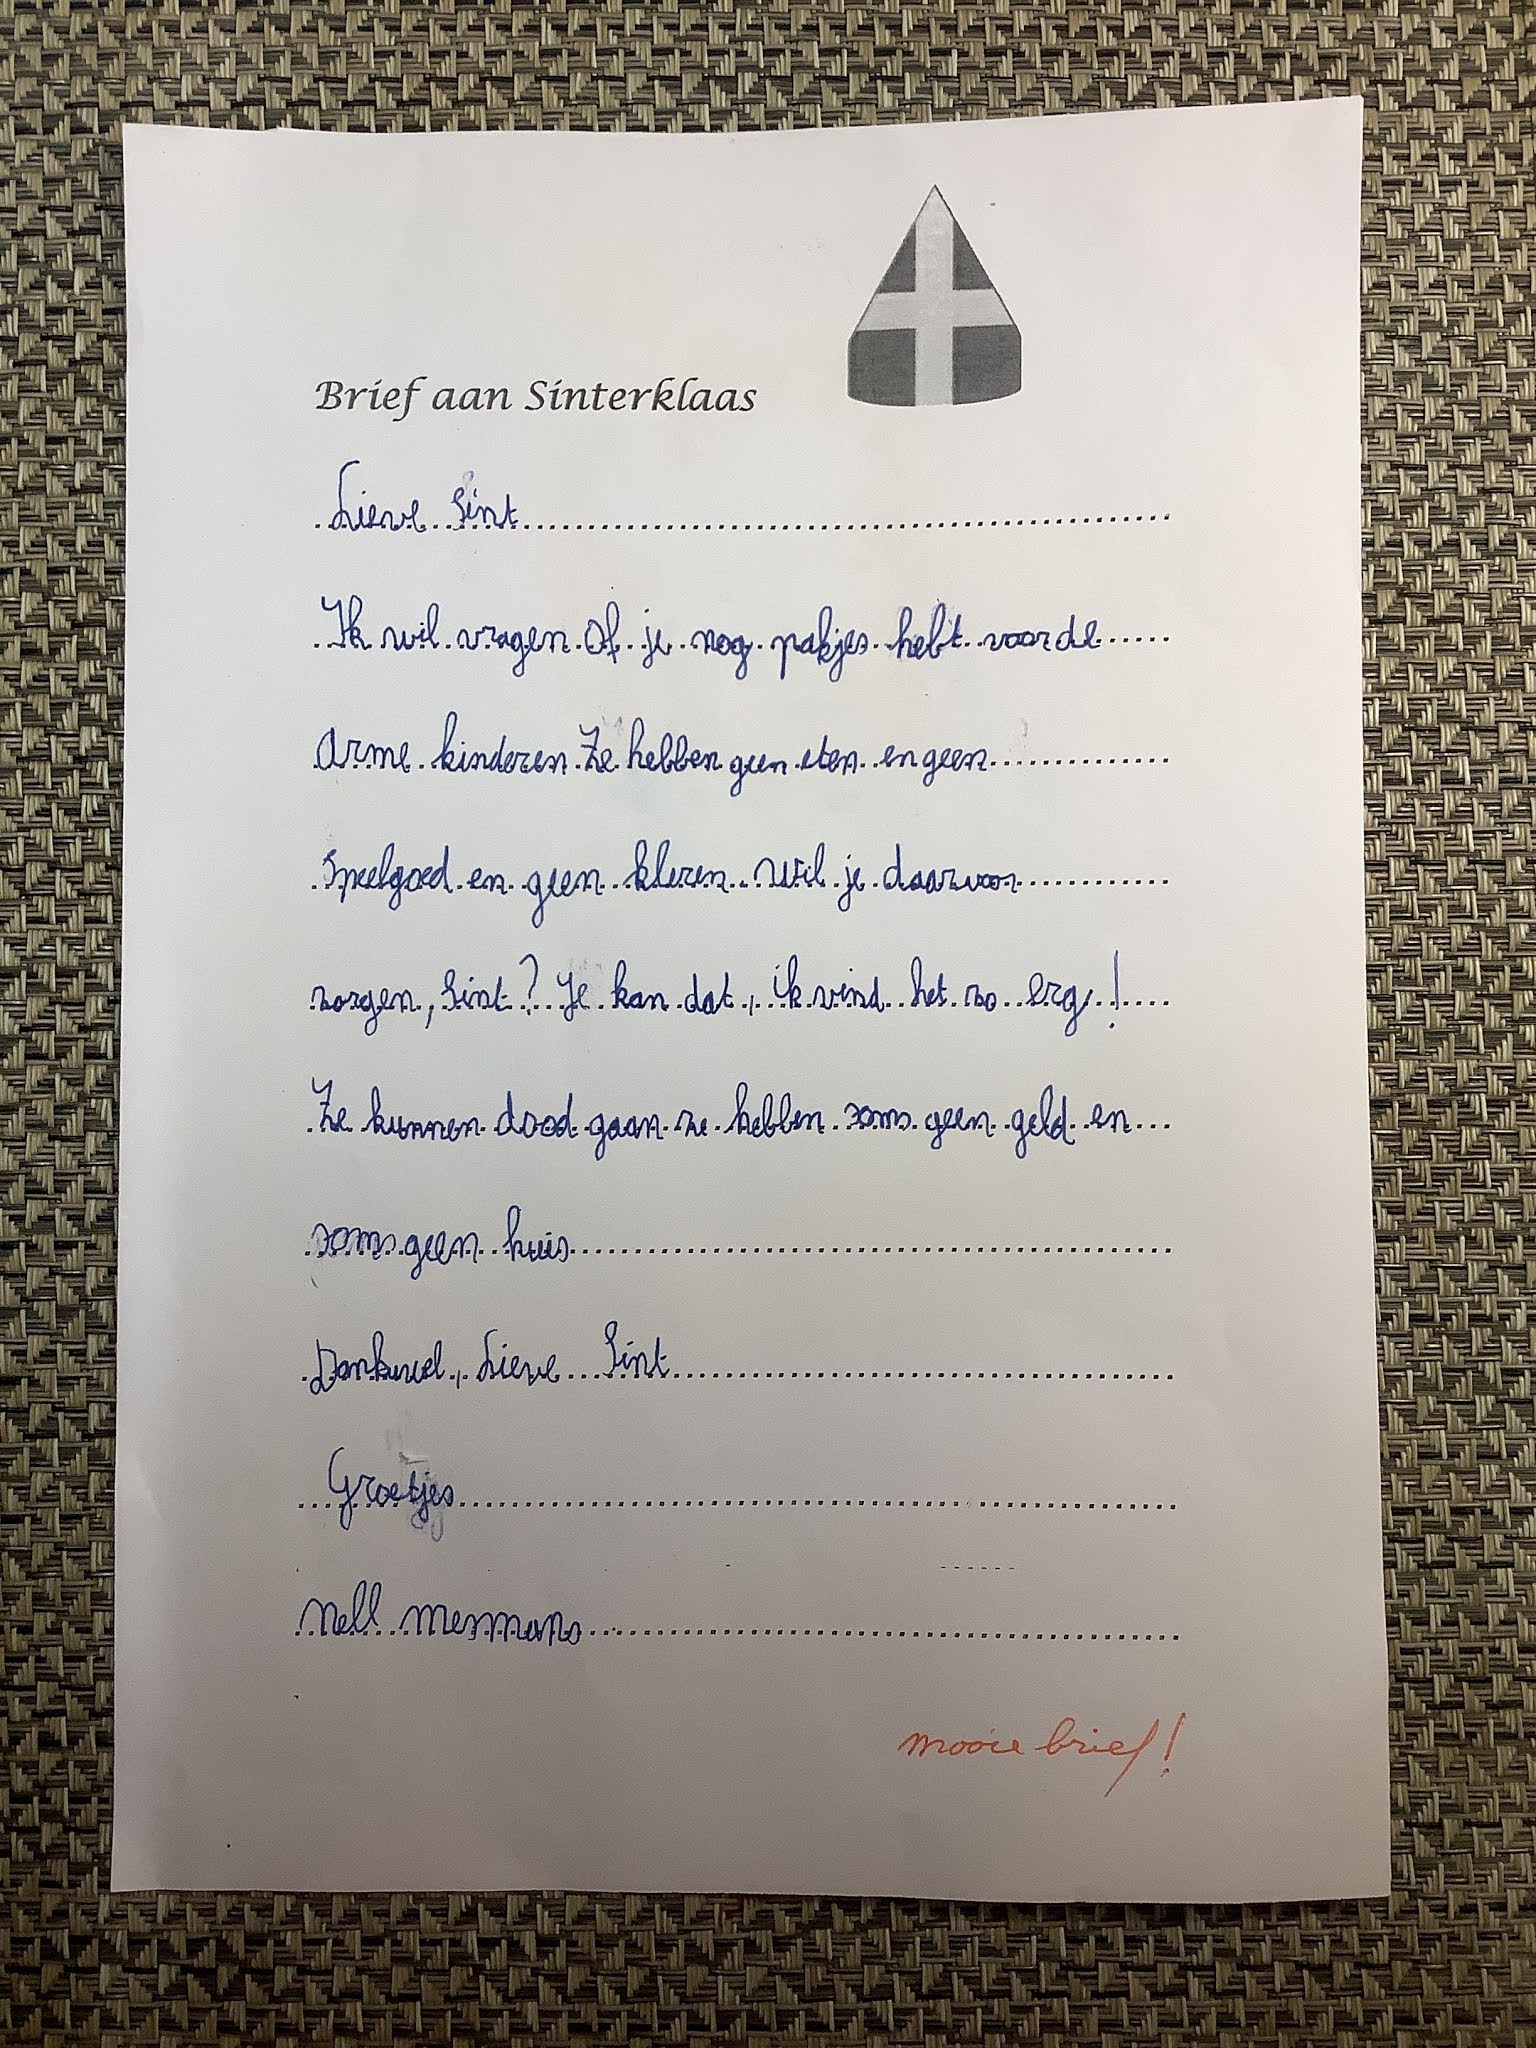 Brief aan Sinterklaas
Lieve Sint
Ik wil vragen of je nog pakjes hebt voor de
arme kinderen Ze hebben geen eten en geen
speelgoed en geen kleren. Wil je daarvoor
zorgen, Sint? Je kan dat, ik vind het zo erg!
Ze kunnen dood gaan ze hebben soms geen geld en
soms geen huis
Dankuwel, Lieve Sint
Groetjes
Nell Mermans
mooie brief!